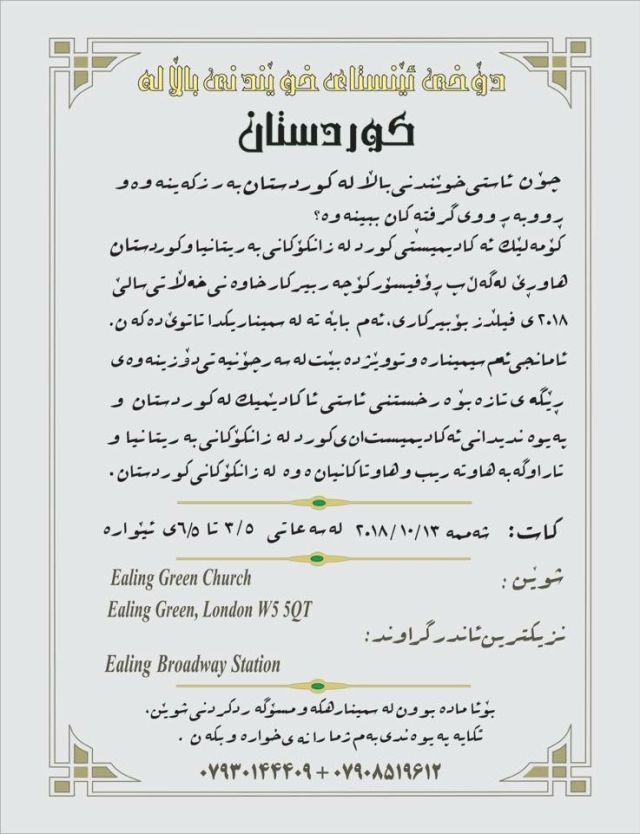 دۆخی ئێستای خوێندنی باڵا لە
کوردستان
چۆن ئاستی خوێندنی باڵا لە کوردستان بەرزکەینەوە و
ڕووبەڕووی گرفتەکان ببینەوە؟
کۆمەلێك ئەکادیمیستی کورد لە زانکۆکانی بەریتانیا وکوردستان
هاوڕێ لەگەڵ پڕۆفیسۆر کۆچەر بیرکار خاوەنی خەڵاتی سالێ
٢٠١٨ی فیلدز بۆ بیرکاری، ئەم بابەتە لە سمیناریکدا تاتوێ دەکەن.
ئامانجی ئەم سیمینارە وتووێژدە بێت لەسەر چۆنیەتی دۆزینەوەی
ڕێگەی تازە بۆ ەرخستنی ئاستی ئاکادێمیك لە کوردستان و
پەیوەندیدانی ئەکادیمیستان‌ی کورد لە زانکۆکانی بەریتانیا و
تاراوگە بە هاوتەریب وهاوتاکانیان ەوە لە زانکۆکانی کوردستان.
کات: شەممە ٢٠١٨/١٠/١٣ لەسەعاتی ٣/٥ تا ٦/٥ی ئێوارە
شوێن:
Ealing Green Church
Ealing Green, London W5 5QT
نزیکترین ئاندرگراوند:
Ealing Broadway Station
بۆئامادەبوون لە سمینارهکە ومسۆگەرکردنی شوێن،
تکایە پەیوەندی بەم ژمارانەی خوارە وبکەن .
٠٧٩٣٠١٤٤٤٠٩ + ٠٧٩٠٨٥١٩٦١٢